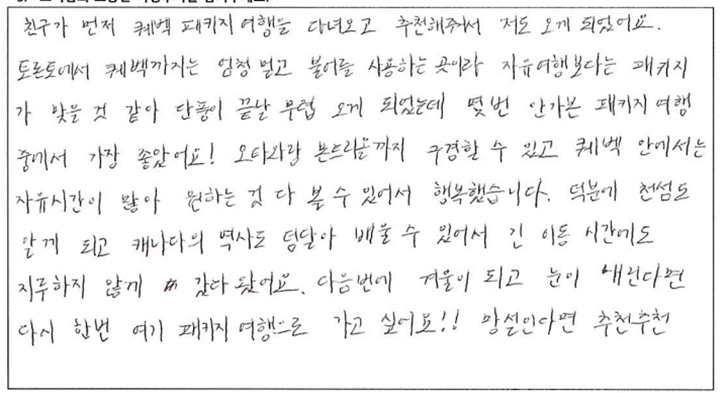 친구가 먼저 퀘벡 패키지 여행을 다녀오고 추천해줘서 저도 오게 되었어요.
토론토에서 퀘벡까지는 엄청 멀고 불어를 사용하는 곳이라 자유여행보다는 패키지
가 맞을 것 같아 단풍이 끝날 무렵 오게 되었는데 몇번 안가본 패키지 여행
중에서 가장 좋았어요! 오타와랑 몬트리올까지 구경할 수 있고 퀘벡 안에서는
자유시간이 많아 원하는 것 다 볼 수 있어서 행복했습니다. 덕분에 천섬도
알게 되고 캐나다의 역사도 덤달아 배울 수 있어서 긴 이동 시간에도
지루하지 않게 갔다 왔어요. 다음번에 겨울이 되고 눈이 내린다면
다시 한번 여기 패키지 여행으로 가고 싶어요!! 망설인다면 추천추천